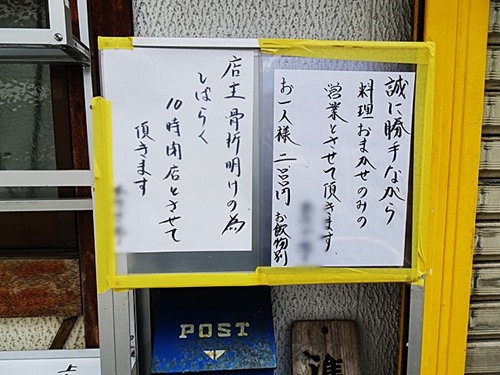 誠に勝手ながら
料理おまかせのみの
営業とさせて頂きます
お一人様 二、五〇〇円 お飲物別
店主骨折明けの為
しばらく
10時閉店とさせて
頂きます
POST
準